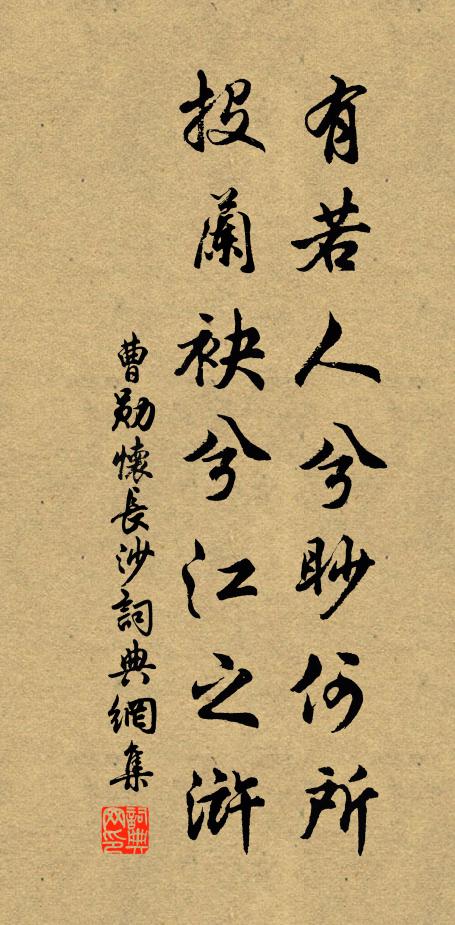 有若人兮眇何所
投蘭袂兮江之滸
曹勛懷長沙詞典網集
詞典网印